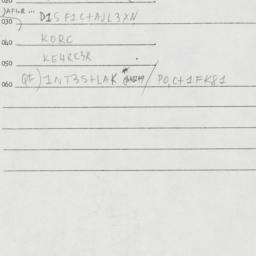 )AFLR ...
030 D1SF1C+AJL3XN
040 KORC
050 KE4RC3R
060 QF) 1NT3S+LAK / PO,C+1FK81